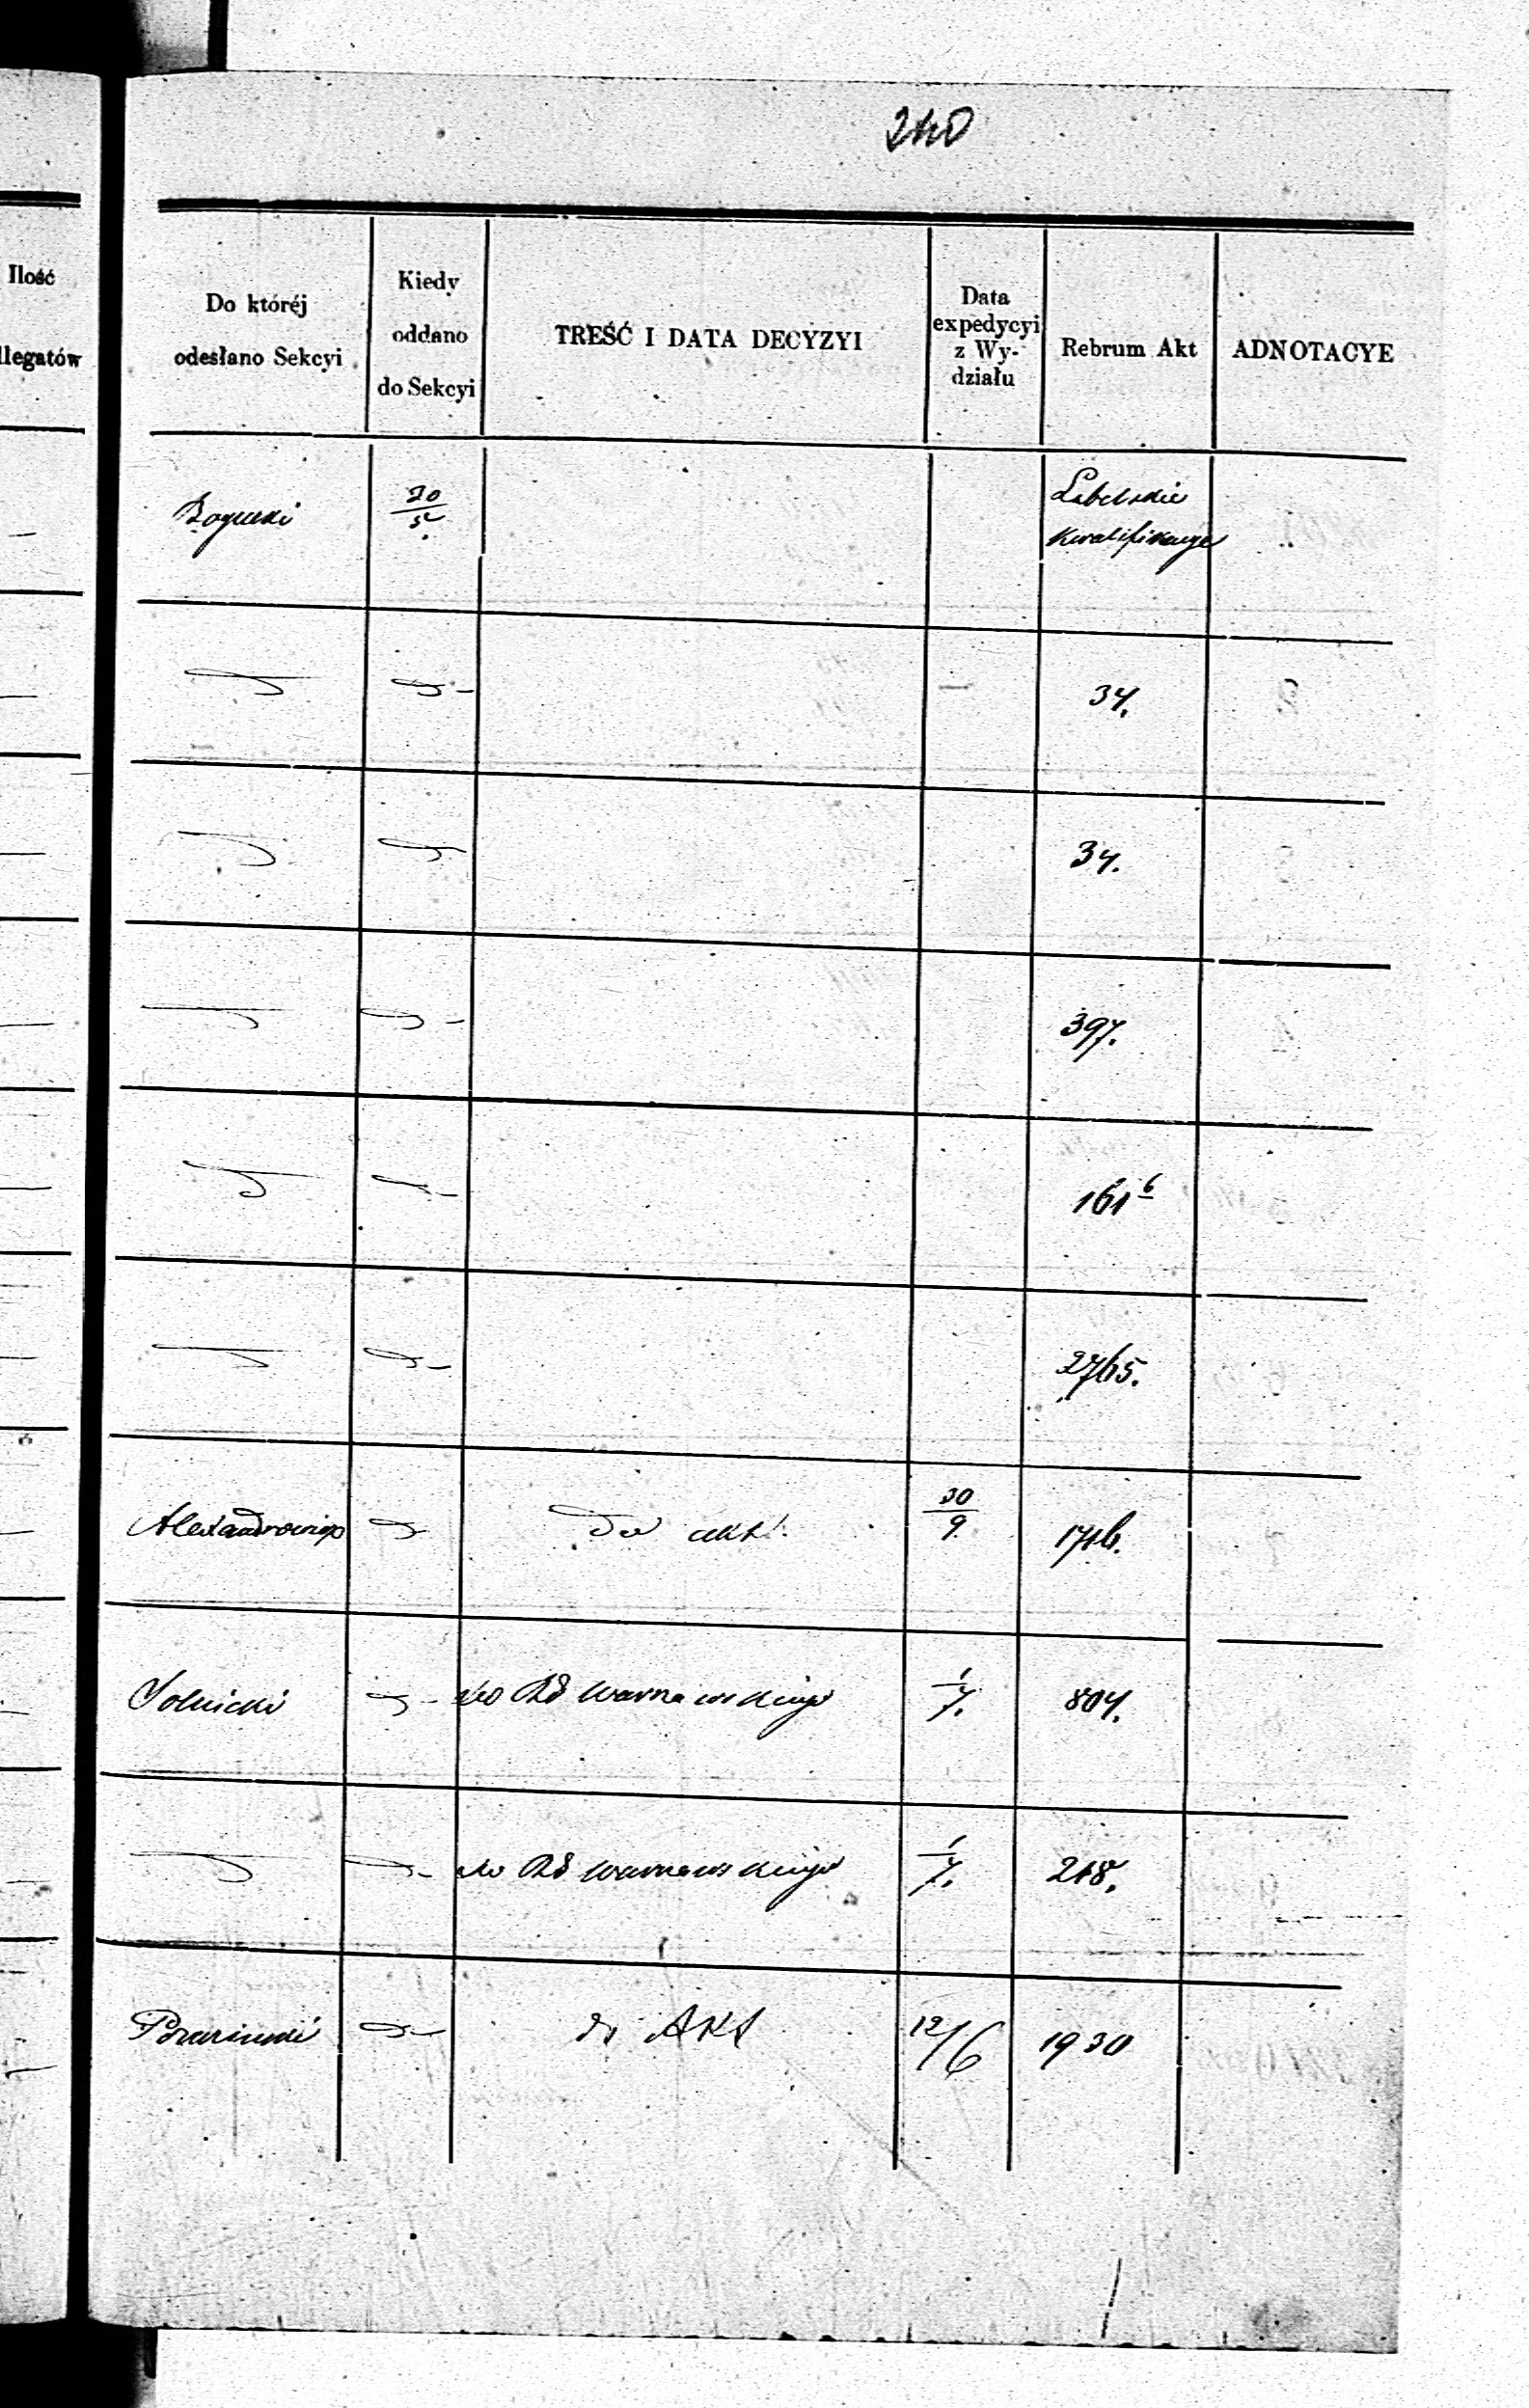 240
Ilość
llegatów
Do któréj
odesłano Sekcyi
Kiedy
oddano
do Sekcyi
TREŚĆ I DATA DECYZYI
Data
expedycyi
z Wy-
działu
Rebrum Akt
ADNOTACYE
Bogucki
20/5
Lubelskie
Kwalifikacye
34.
34.
397.
161 6
2765.
do akt.
30/9
1716.
Solnicki
do Rd Warnawskiego
1/7.
807.
do Rd Warnawskiego
1/7.
218.
do Akt
12/6
1930